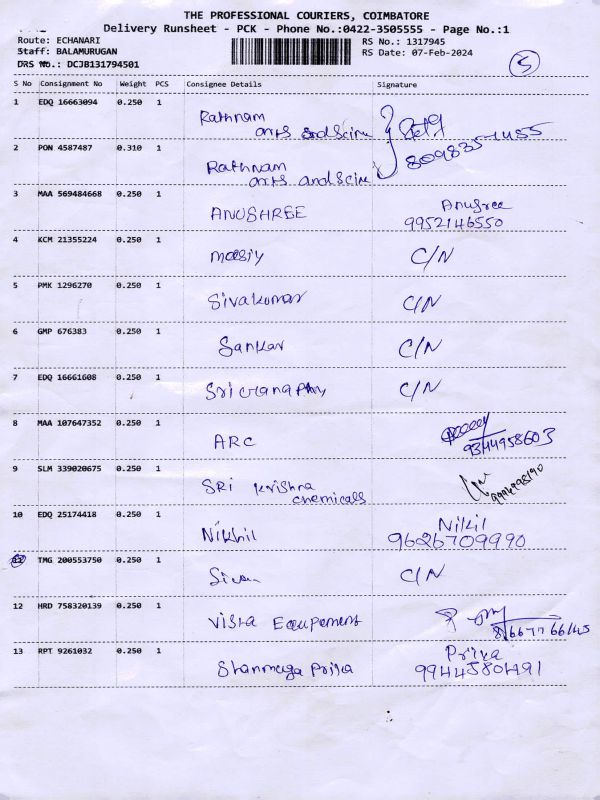 THE PROFESSIONAL COURIERS, COIMBATORE
Delivery Runsheet - PCK - Phone No.:0422-3505555 - Page No.:1
Route: ECHANARI RS No.: 1317945
Staff: BALAMURUGAN RS Date: 07-Feb-2024
DRS No.: DCJB131794501 5
S No Consignment No Weight PCS Consignee Details Signature
1 EDQ 16663094 0.250 1 Rathnam
arts and Scin
2 PON 4587487 0.310 1 Rathnam
arts and Scin
3 MAA 569484668 0.250 1 ANUSHREE Anusree
9952146550
4 KCM 21355224 0.250 1 C/N
5 PMK 1296270 0.250 1 Sivakumar C/N
6 GMP 676383 0.250 1 Sankar C/N
7 EDQ 16661608 0.250 1 C/N
8 MAA 107647352 0.250 1 ARC
9344958603
9 SLM 339020675 0.250 1 SRI Krishna
chemicals
10 EDQ 25174418 0.250 1 Nikhil Nikil
9626709990
TMG 200553750 0.250 1 C/N
12 HRD 758320139 0.250 1 Vista Equpement
13 RPT 9261032 0.250 1 Shanmuga Priya Priya
9944580491